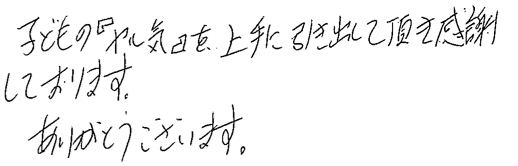 子どもの『ヤル気』を上手に引き出して頂き感謝
しております。
ありがとうございます。